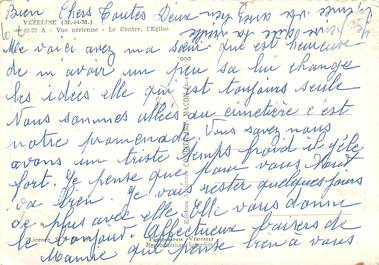 Bien Chers Toutes Deux
VEZELISE (M.-et-M.)
Vue aérienne - Le Centre, l'Eglise
Me voici avez ma sœur qui est heureuse
de m'avoir un peu sa lui change
les idées elle qui est toujours seule
Nous sommes allées au cimetière c'est
notre promenade. Vous savez nous
avons un triste temps froid il gèle
fort. Je pense que pour vous tout
va bien. Je vais rester quelques jours
de plus avec elle. Elle vous donne
le bonjour. Affectueux baisers de
Mamie qui pense bien a vous